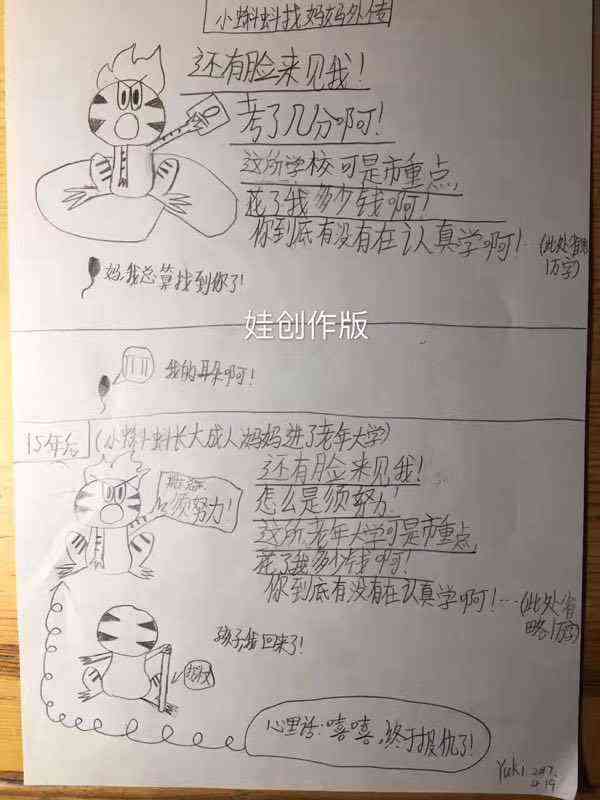 小蝌蚪找妈妈外传
还有脸来见我！
考了几分啊！
这所学校可是市重点，
花了我多少钱啊！
你到底有没有在认真学啊！…(此处省略
1万字)
妈，我总算找到你了！
娃创作版
我的耳朵啊！
15年后
(小蝌蚪长大成人妈妈进了老年大学)
还有脸来见我！
怎么是须努力！
这所老年大学可是市重点，
花了我多少钱啊！
你到底有没有在认真学啊！…(此处省
略1万字)
须努力！
孩子，我回来了！
拐杖
心里话：嘻嘻，终于报仇了！
Yuki 2017.
4.19